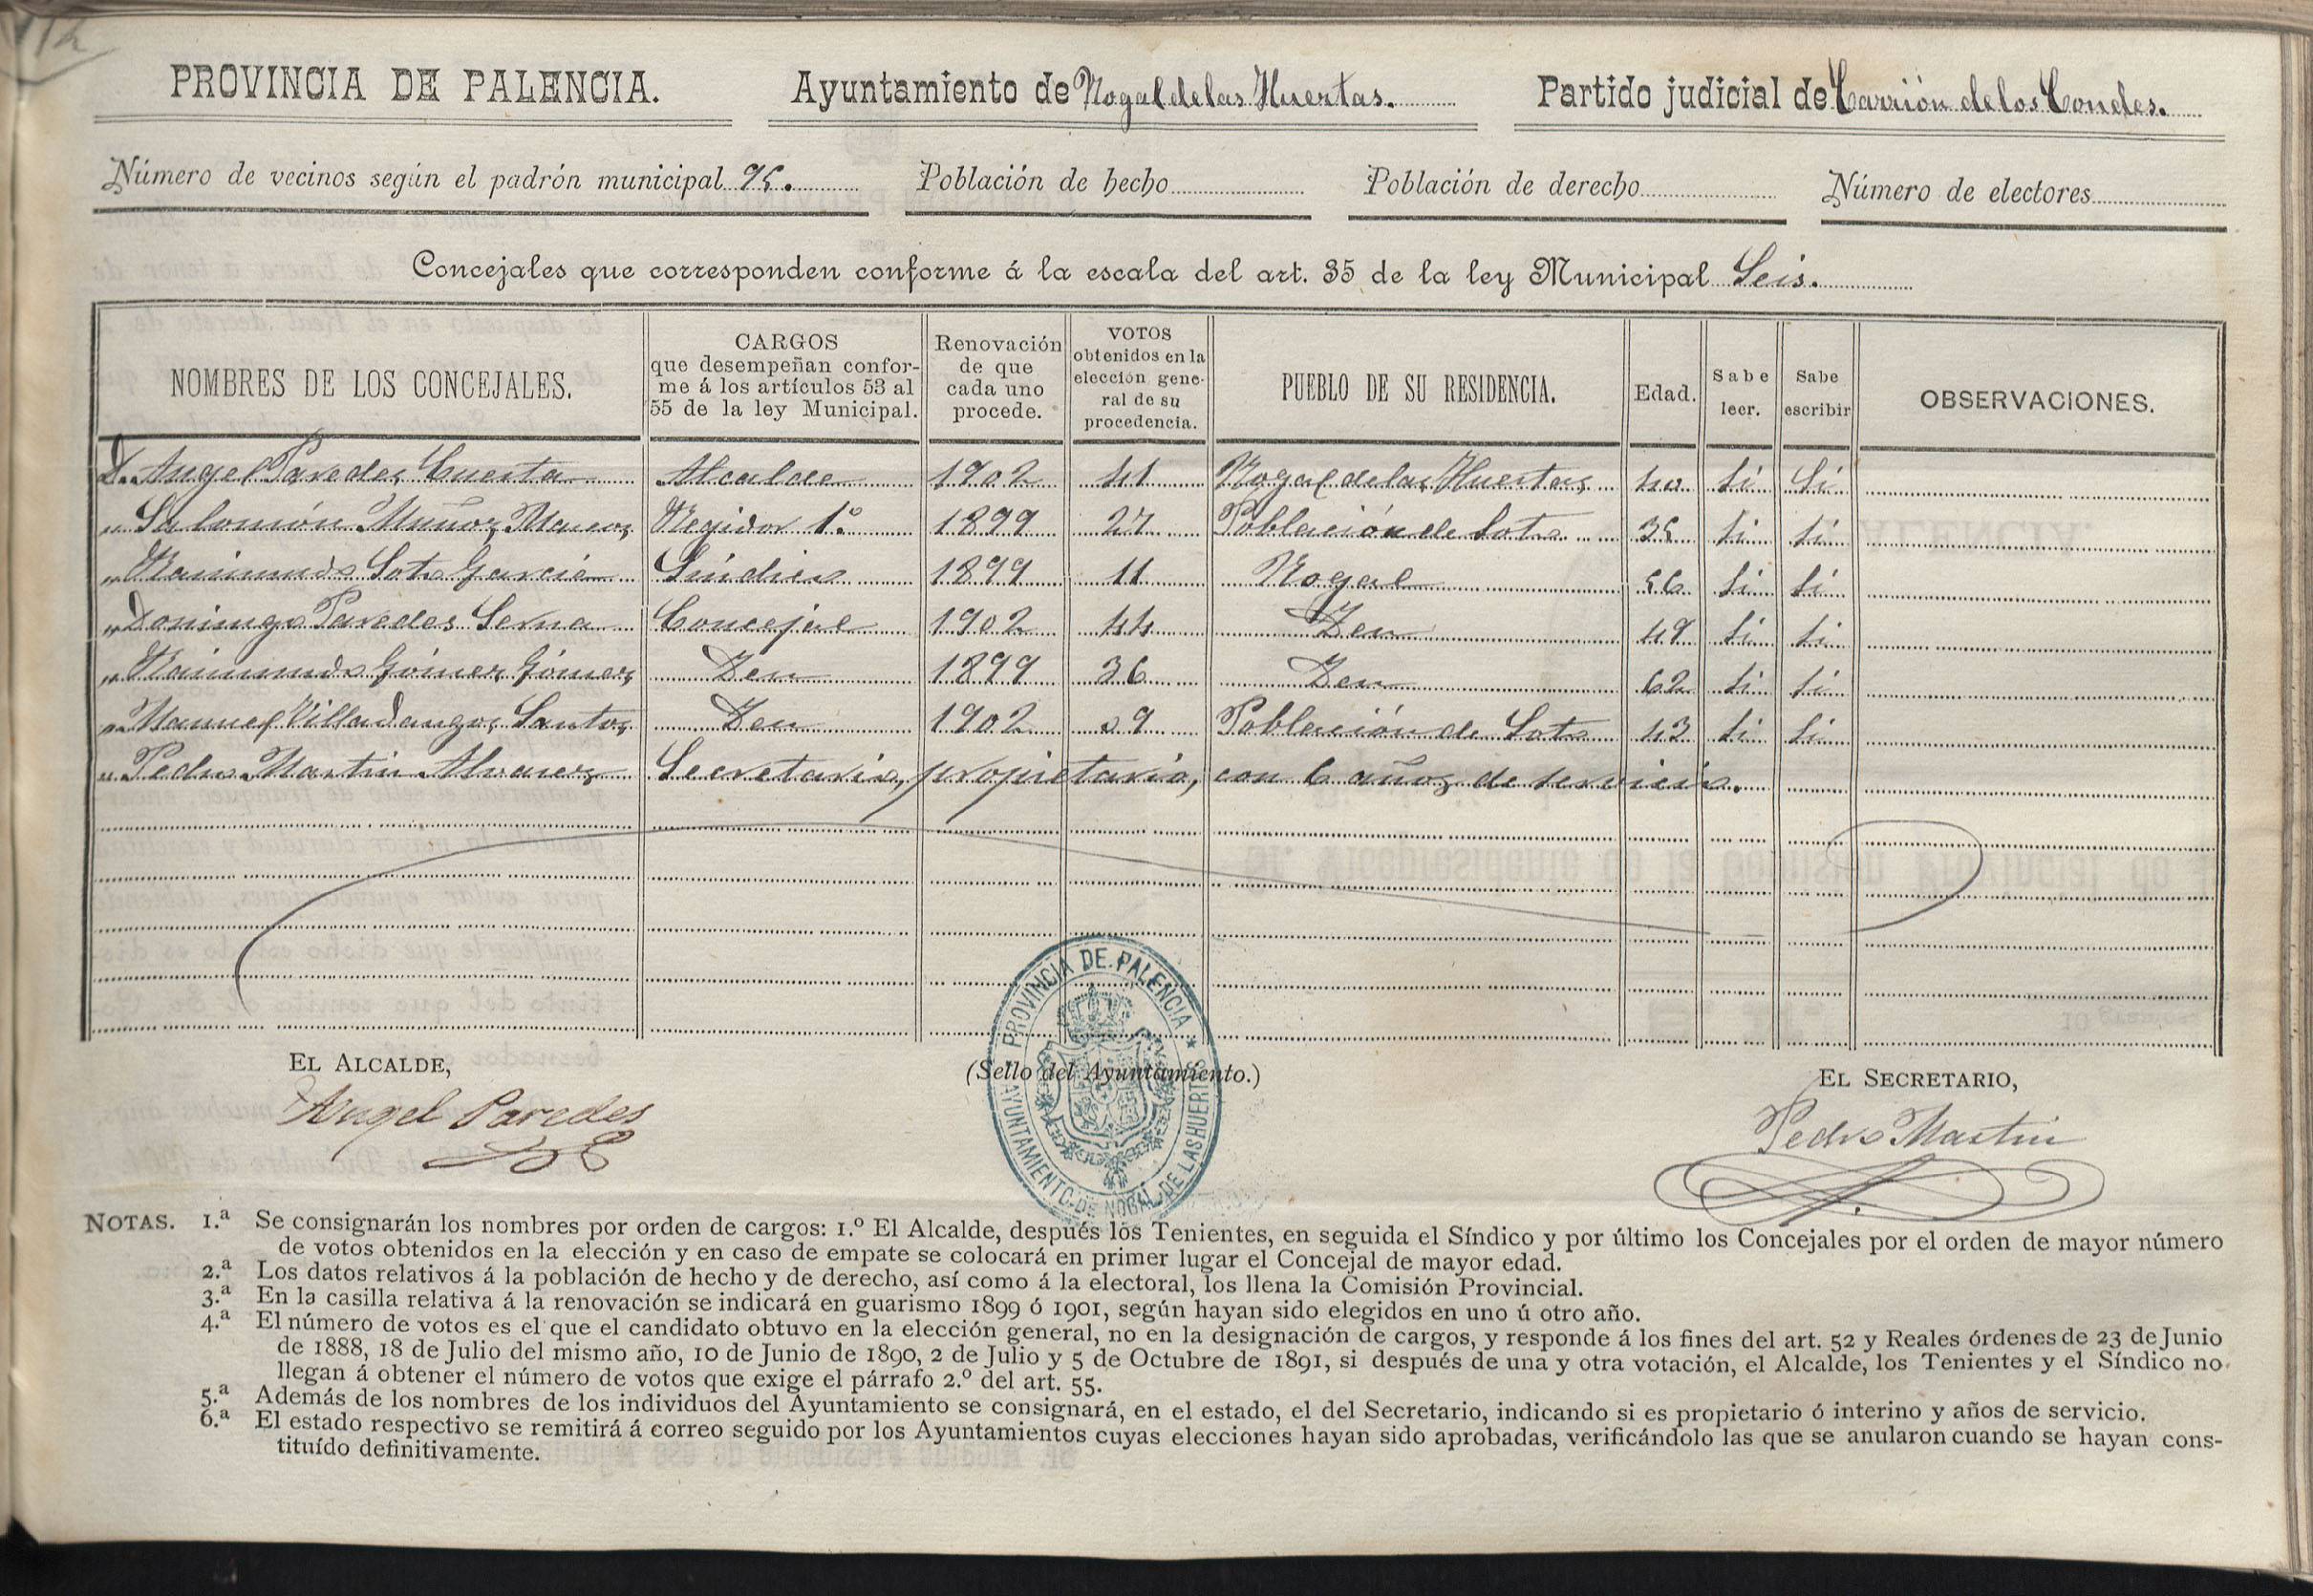 PROVINCIA DE PALENCIA. Ayuntamiento de Nogal de las Huertas. Partido judicial de Carrión de los Condes.
Número de vecinos según el padrón municipal 95. Población de hecho Población de derecho Número de electores
Concejales que corresponden conforme á la escala del art. 35 de la ley Municipal Seis.
NOMBRES DE LOS CONCEJALES.
CARGOS
que desempeñan confor-
me á los artículos 53 al
55 de la ley Municipal.
Renovación
de que
cada uno
procede.
VOTOS
obtenidos en la
elección gene-
ral de su
procedencia.
PUEBLO DE SU RESIDENCIA.
Edad.
Sabe
leer.
Sabe
escribir
OBSERVACIONES.
D. Angel Paredes Cuesta Alcalde 1902 41 Nogal de las Huertas 40 Si Si
" Salomón Muñoz Marcos Regidor 1.º 1899 27 Población de Soto 35 Si Si
" Raimundo Soto García Síndico 1899 11 Nogal 56 Si Si
" Domingo Paredes Serna Concejal 1902 44 Den 49 Si Si
" Raimundo Gómez Gómez Den 1899 36 Den 62 Si Si
" Manuel Villadangos Santos Den 1902 29 Población de Soto 43 Si Si
" Pedro Martin Alvarez Secretario, propietario, con 6 años de servicio.
EL ALCALDE,
Angel Paredes
(Sello del Ayuntamiento.)
PROVINCIA DE PALENCIA * AYUNTAMIENTO DE NOGAL DE LAS HUERTAS
EL SECRETARIO,
Pedro Martin
NOTAS. 1.ª Se consignarán los nombres por orden de cargos: 1.º El Alcalde, después los Tenientes, en seguida el Síndico y por último los Concejales por el orden de mayor número
de votos obtenidos en la elección y en caso de empate se colocará en primer lugar el Concejal de mayor edad.
2.ª Los datos relativos á la población de hecho y de derecho, así como á la electoral, los llena la Comisión Provincial.
3.ª En la casilla relativa á la renovación se indicará en guarismo 1899 ó 1901, según hayan sido elegidos en uno ú otro año.
4.ª El número de votos es el que el candidato obtuvo en la elección general, no en la designación de cargos, y responde á los fines del art. 52 y Reales órdenes de 23 de Junio
de 1888, 18 de Julio del mismo año, 10 de Junio de 1890, 2 de Julio y 5 de Octubre de 1891, si después de una y otra votación, el Alcalde, los Tenientes y el Síndico no
llegan á obtener el número de votos que exige el párrafo 2.º del art. 55.
5.ª Además de los nombres de los individuos del Ayuntamiento se consignará, en el estado, el del Secretario, indicando si es propietario ó interino y años de servicio.
6.ª El estado respectivo se remitirá á correo seguido por los Ayuntamientos cuyas elecciones hayan sido aprobadas, verificándolo las que se anularon cuando se hayan cons-
tituído definitivamente.